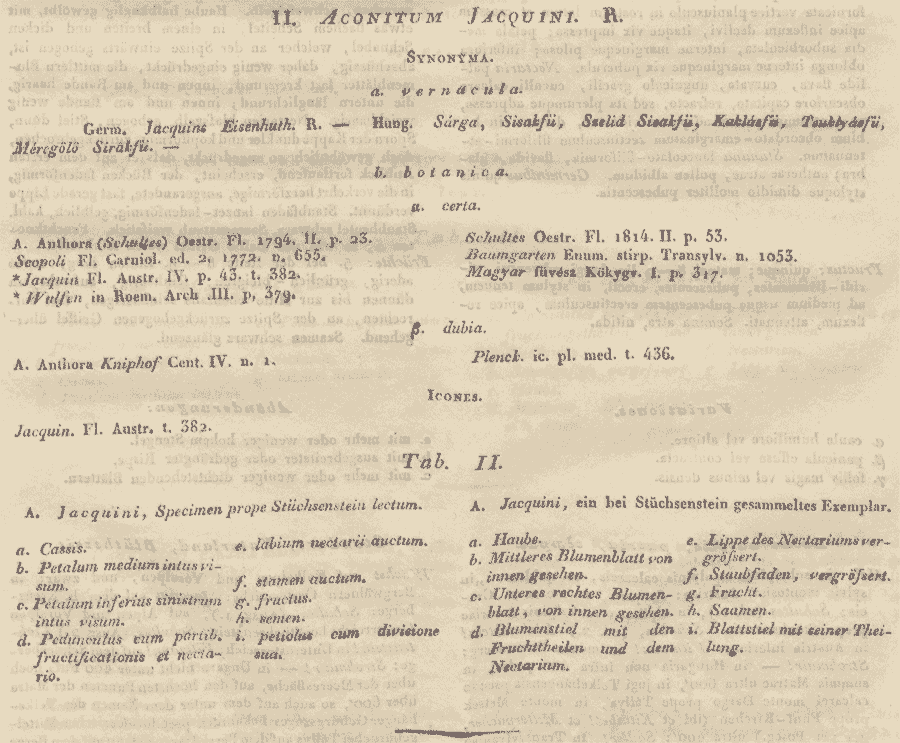 II. ACONITUM JACQUINI. R.
SYNONYMA.
a. vernacula.
Germ. Jacquins Eisenhuth. R. — Hung. Sárga, Sisakfü, Szelid Sisakfü,
Méregölö Sirákfü. —
b. botanica.
α. certa.
A. Anthora (Schultes) Oestr. Fl. 1794. II. p. 23.
Scopoli Fl. Carniol. ed. 2. 1772. n. 655.
* Jacquin Fl. Austr. IV. p. 43. t. 382.
* Wulfen in Roem. Arch .III. p. 379.
Schultes Oestr. Fl. 1814. II. p. 53.
Baumgarten Enum. stirp. Transylv. n. 1053.
Magyar füvész Kökygv. I. p. 317.
β. dubia.
A. Anthora Kniphof Cent. IV. n. 1.
Plenck. ic. pl. med. t. 436.
ICONES.
Jacquin. Fl. Austr. t. 382.
Tab. II.
A. Jacquini, Specimen prope Stüchsenstein lectum.
a. Cassis.
b. Petalum medium intus vi-
sum.
c. Petalum inferius sinistrum
intus visum.
d. Pedunculus cum partib.
fructificationis et necta-
rio.
e. labium nectarii auctum.
f. stamen auctum.
g. fructus.
h. semen.
i. petiolus cum divisione
sua.
A. Jacquini, ein bei Stüchsenstein gesammeltes Exemplar.
a. Haube.
b. Mittleres Blumenblatt von
innen gesehen.
c. Unteres rechtes Blumen-
blatt, von innen gesehen.
d. Blumenstiel mit den
Fruchttheilen und dem
Nectarium.
e. Lippe des Nectariums ver-
gröfsert.
f. Staubfaden, vergröfsert.
g. Frucht.
h. Saamen.
i. Blattstiel mit seiner Thei-
lung.